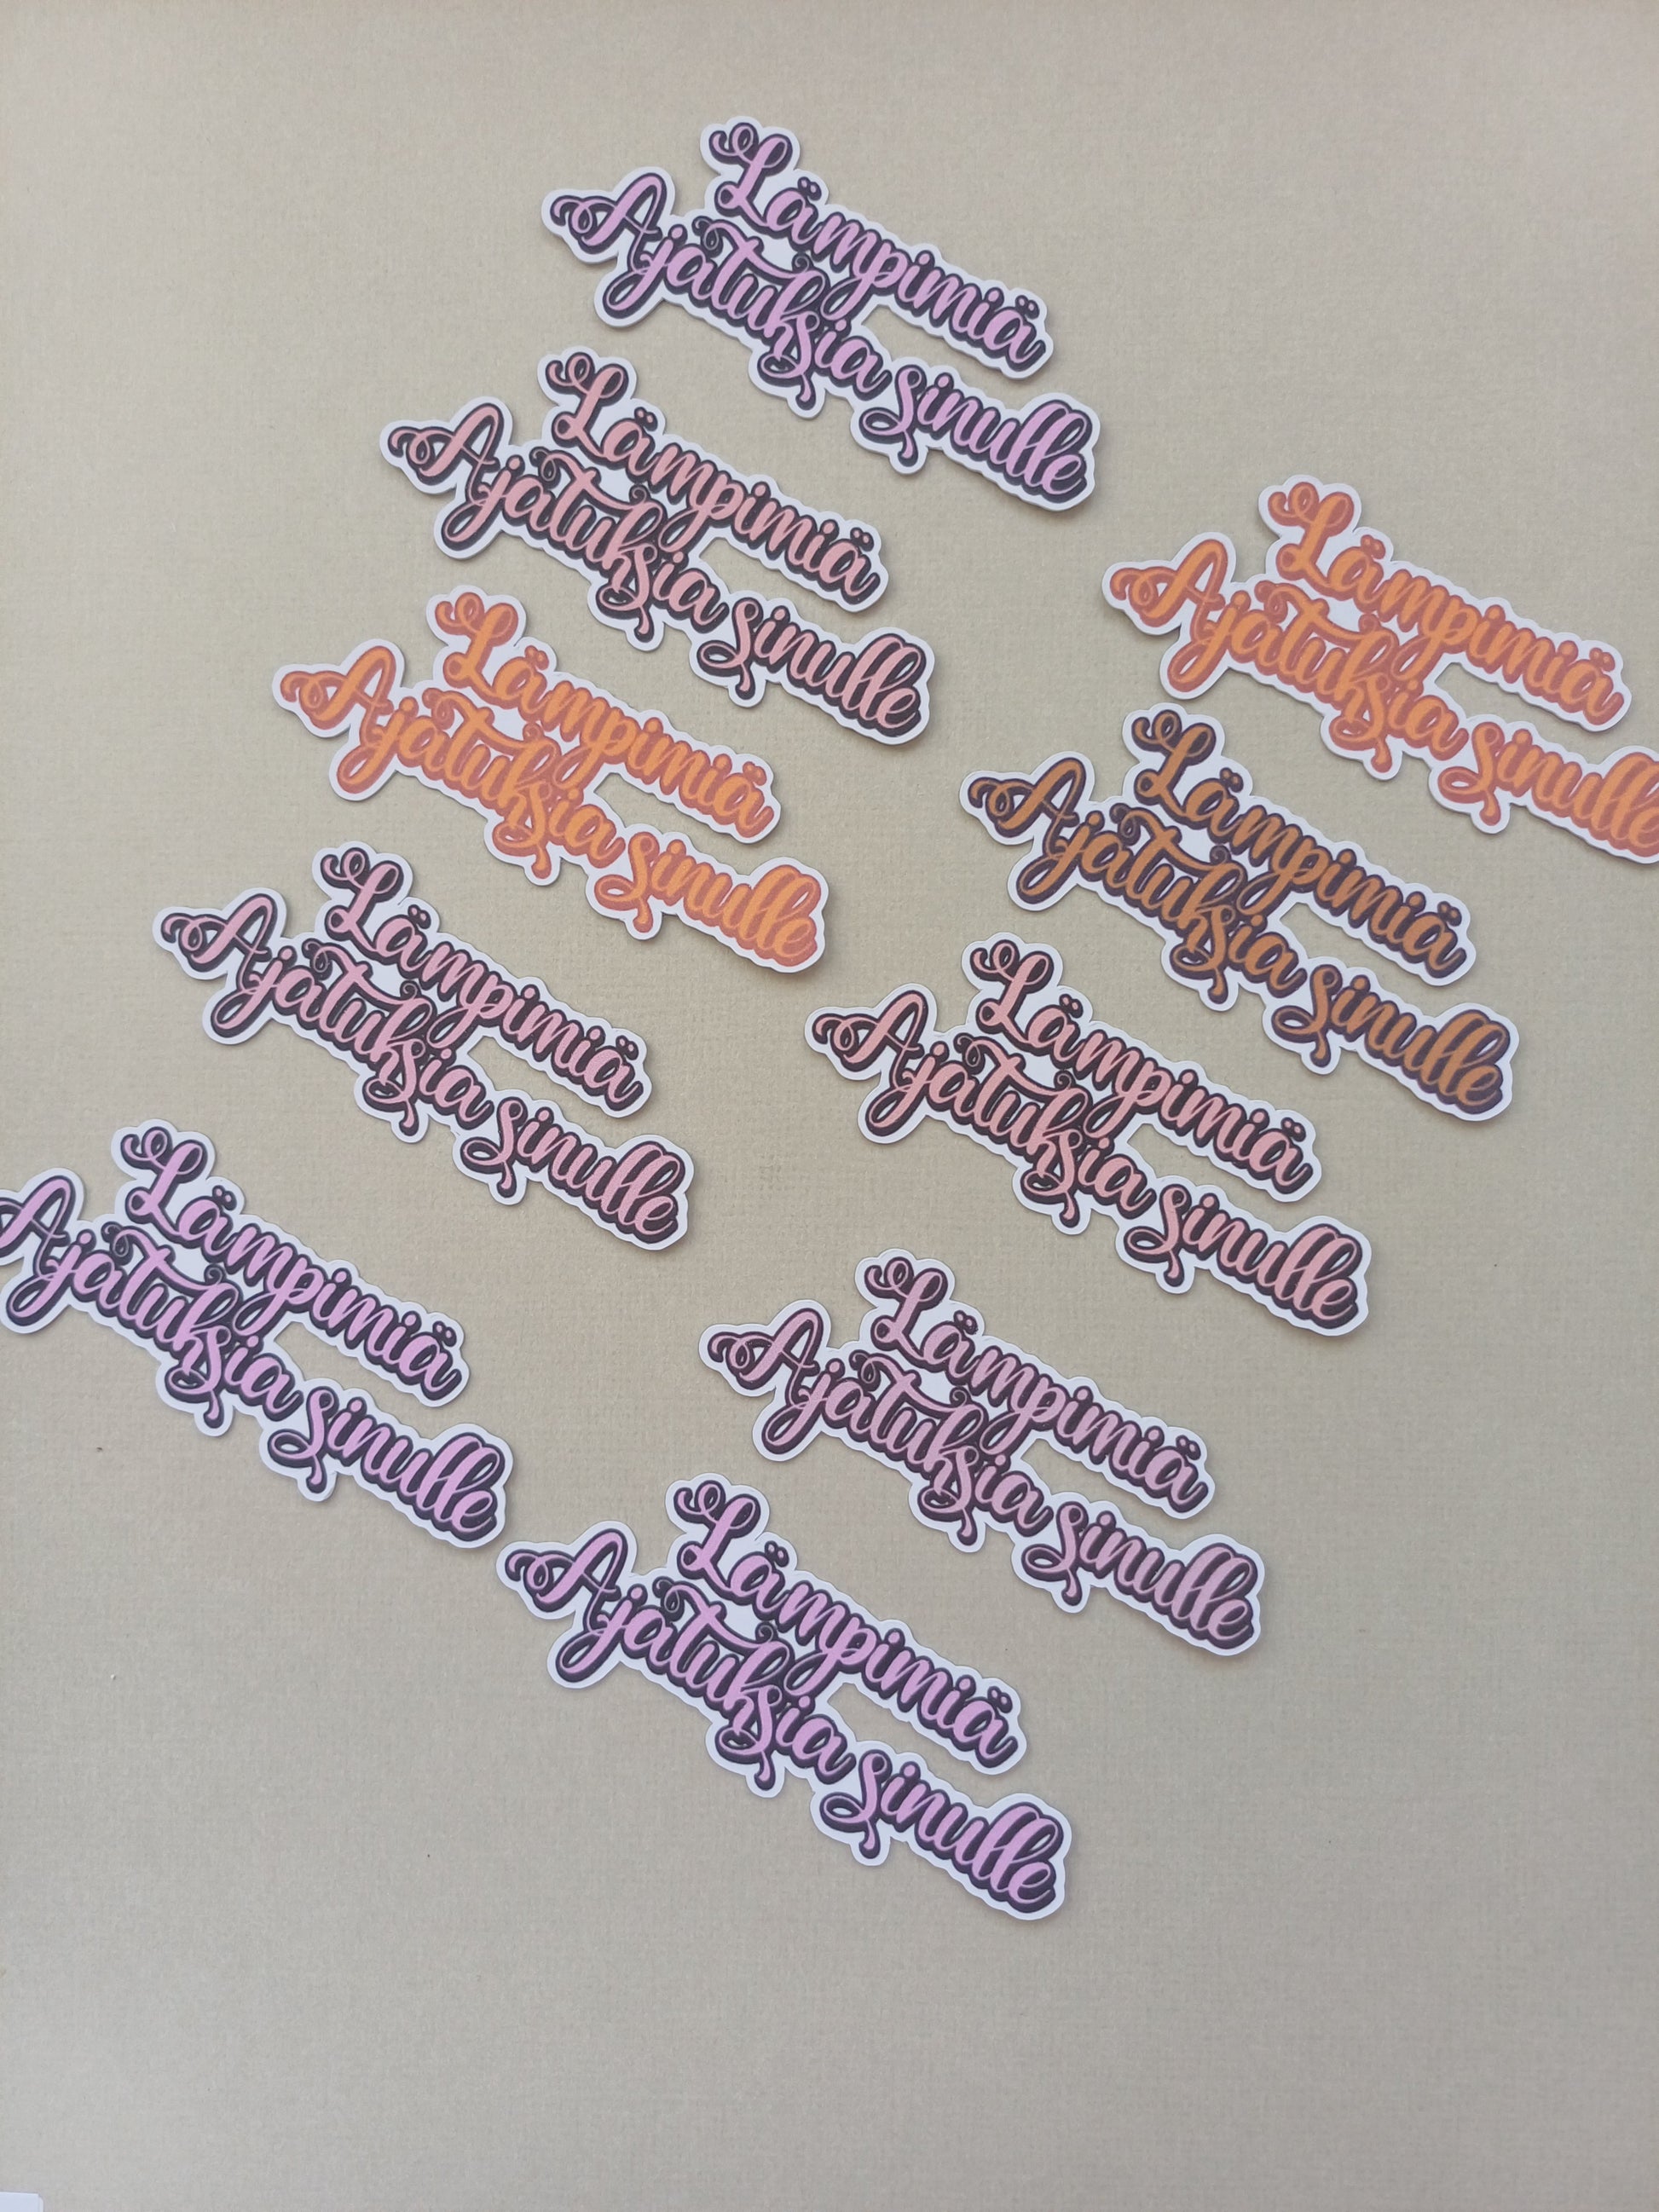 Lämpimiä
Ajatuksia sinulle
Lämpimiä
Ajatuksia sinulle
Lämpimiä
Ajatuksia sinulle
Lämpimiä
Ajatuksia sinulle
Lämpimiä
Ajatuksia sinulle
Lämpimiä
Ajatuksia sinulle
Lämpimiä
Ajatuksia sinulle
Lämpimiä
Ajatuksia sinulle
Lämpimiä
Ajatuksia sinulle
Lämpimiä
Ajatuksia sinulle